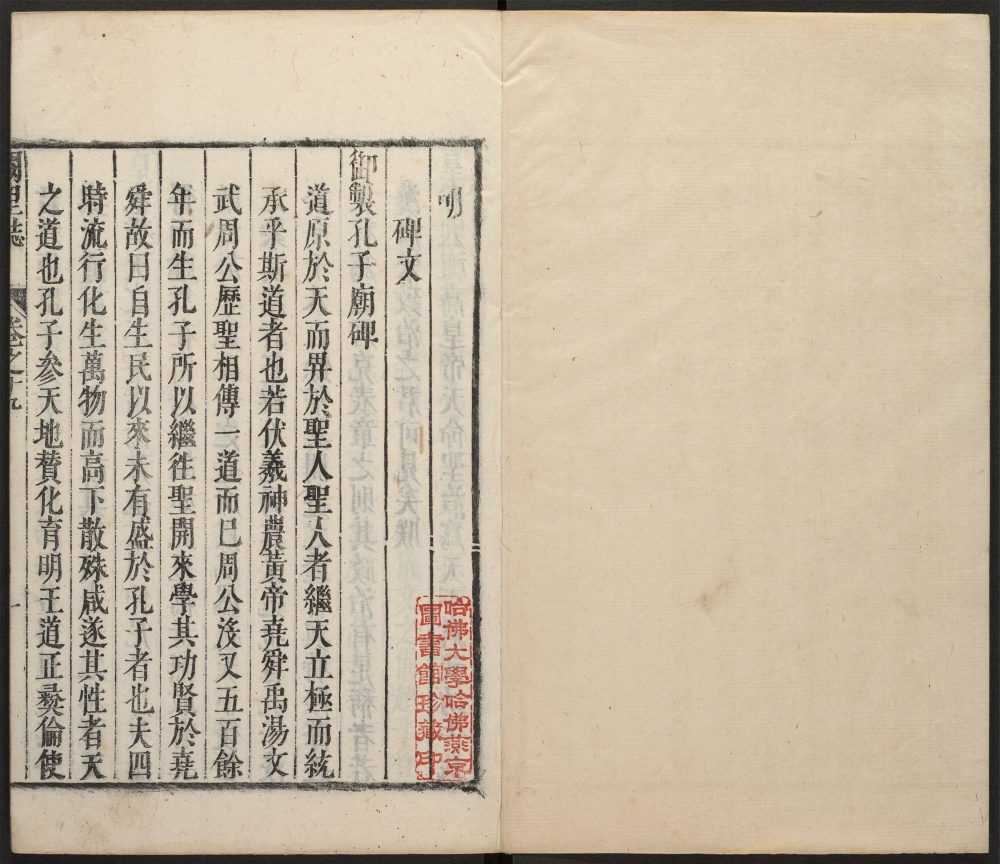 明
碑文
御製孔子廟碑
道原於天而畀於聖人聖人者繼天立極而統
承乎斯道者也若伏羲神農黃帝堯舜禹湯文
武周公歷聖相傳一道而已周公没又五百餘
年而生孔子所以繼徃聖開來學其功賢於堯
舜故曰自生民以來未有盛於孔子者也夫四
時流行化生萬物而高下散殊咸遂其性者天
之道也孔子參天地賛化育明王道正彝倫使
闕里誌
卷之十九
一
哈佛大學哈佛燕京
圖書館珍藏印